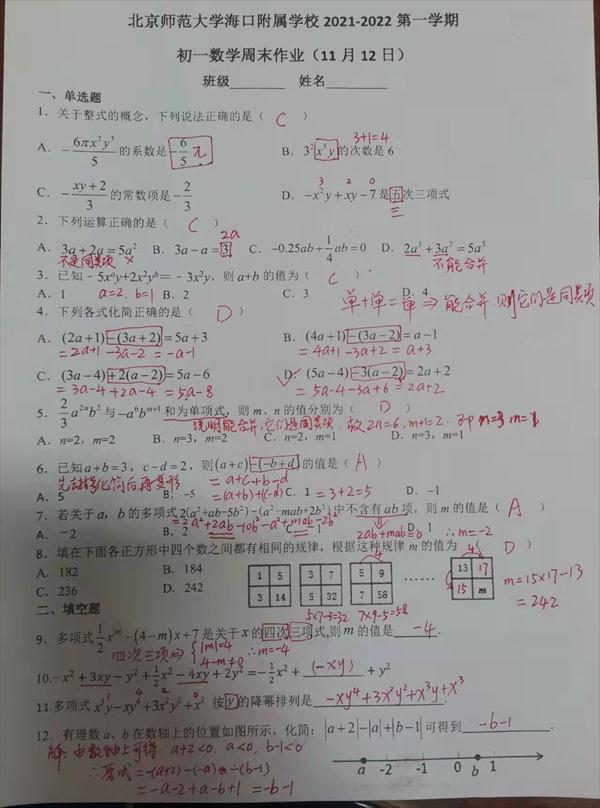 北京师范大学海口附属学校 2021-2022 第一学期
初一数学周末作业（11 月 12 日）
班级________ 姓名________
一、单选题
1．关于整式的概念，下列说法正确的是（ C ）
3+1=4
A．-6πx²y³/5 的系数是-6/5 π B．3²x³y 的次数是 6
C．-(xy+2)/3 的常数项是-2/3 D．-x²y+xy-7 是五次三项式
3 2 0
三
2．下列运算正确的是（ C ）
2a
A．3a+2a=5a² B．3a-a=3 C．-0.25ab+1/4ab=0 D．2a²+3a³=5a⁵
不是同类项 × 不能合并
3．已知﹣5xᵃy+2x²yᵇ=﹣3x²y，则 a+b 的值为（ C ）
A．1 a=2. b=1 B．2 C．3 D．4
单+单=单⇒能合并.则它们是同类项
4．下列各式化简正确的是（ D ）
A．(2a+1)-(3a+2)=5a+3 B．(4a+1)-(3a-2)=a-1
=2a+1 -3a-2 = -a-1 =4a+1 -3a+2 = a+3
C．(3a-4)+2(a-2)=5a-6 D．(5a-4)-3(a-2)=2a+2
=3a-4+2a-4 = 5a-8 =5a-4-3a+6 = 2a+2
5．2/3a²ⁿb²与-a⁶bᵐ⁺¹和为单项式，则 m、n 的值分别为（ D ）
说明能合并,它们是同类项. 故2n=6. m+1=2.
A．n=2，m=2 B．n=3，m=2 C．n=2，m=1 D．n=3，m=1
6．已知a+b=3，c-d=2，则(a+c)-(-b+d)的值是（ A ）
先去括号化简后再变形 = a+c+b-d
A．5 B．-5 C．1 D．-1
=(a+b)+(c-d) =3+2=5
7．若关于 a，b 的多项式2(a²+ab-5b²)-(a²-mab+2b²)中不含有ab项，则 m 的值是（ A ）
=2a²+2ab-10b²-a²+mab-2b²
A．-2 B．2 D．1
2ab+mab=0 ∴m=-2
8．填在下面各正方形中四个数之间都有相同的规律，根据这种规律 m 的值为（ D ）
A．182 B．184
C．236 D．242
1 5 3 7 5 9 …… 13 17
3 14 5 32 7 58 15 m
5×7-3=32 7×9-5=58
m=15×17-13
=242
二、填空题
9．多项式1/2x^|m|-(4-m)x+7是关于x的四次三项式,则m的值是 -4 .
四次三项⇒{|m|=4 4-m≠0 ∴m=-4
10.-x²+3xy-y²+1/2x²-4xy+2y²=-1/2x²+ (-xy) +y²
11.多项式x³y-xy⁴+3x²y²+x³ 按y的降幂排列是 -xy⁴+3x²y²+x³y+x³ .
1 4 2 0
12．有理数 a、b 在数轴上的位置如图所示，化简：|a+2|-|a|+|b-1|可得到 -b-1 .
解: 由数轴上可得: a+2<0, a<0, b-1<0
∴原式=-(a+2)-(-a)-(b-1)
=-a-2+a-b+1 = -b-1
a -2 -1 0 b 1